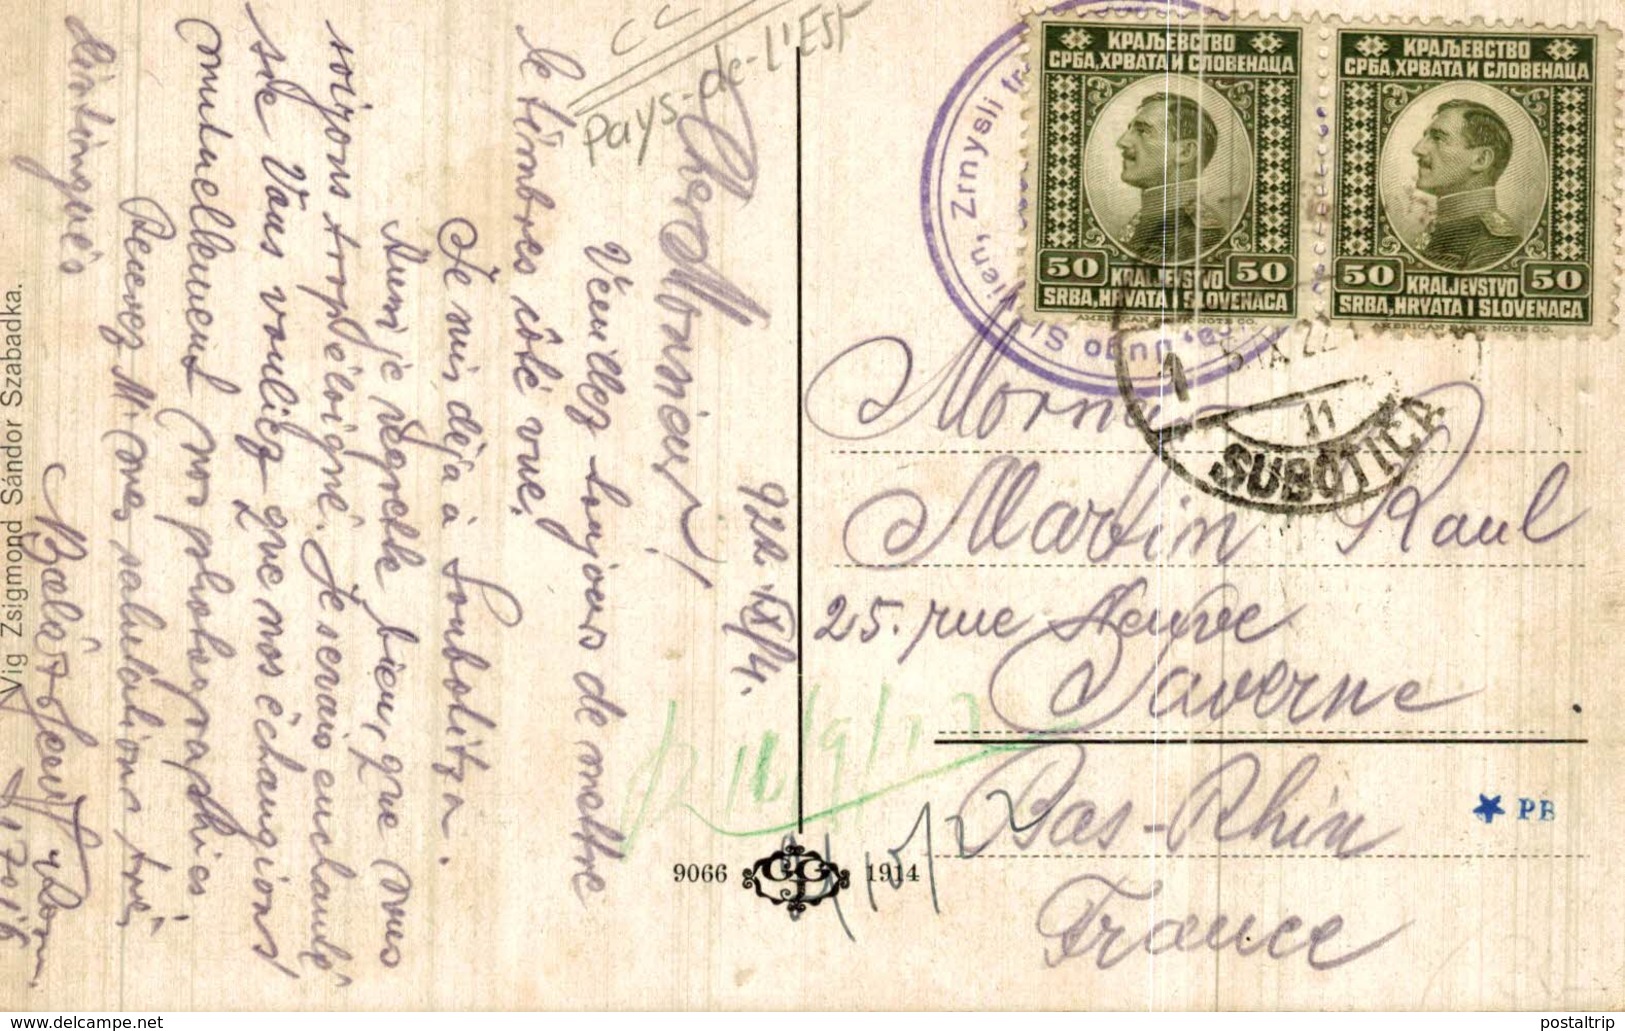 CC
Pays-de-L'Est
922. IX/4.
Cher Monsieur!
Veuillez toujours de mettre
le timbres côté vue!
Je suis déja à Soubotitza.
Aussi je regrette bien, que nous
soizons trop éloigné. Je serais enchanté
si de Vous vouliez que nos échangions
mutuellement nos photographies
Recevez Mr mes salutations très
distingués
Vig Zsigmond Sándor Szabadka.
КРАЉЕВСТВО
СРБА, ХРВАТА И СЛОВЕНАЦА
50 KRALJEVSTVO 50
SRBA, HRVATA I SLOVENACA
AMERICAN BANK NOTE CO.
КРАЉЕВСТВО
СРБА, ХРВАТА И СЛОВЕНАЦА
50 KRALJEVSTVO 50
SRBA, HRVATA I SLOVENACA
AMERICAN BANK NOTE CO.
Zrnysli
1
5 IX 22
11
SUBOTICA
Martin Raul
25. rue Neuve
Saverne
Bas-Rhin
France
PB
9066 1914
delcampe.net
postaltrip